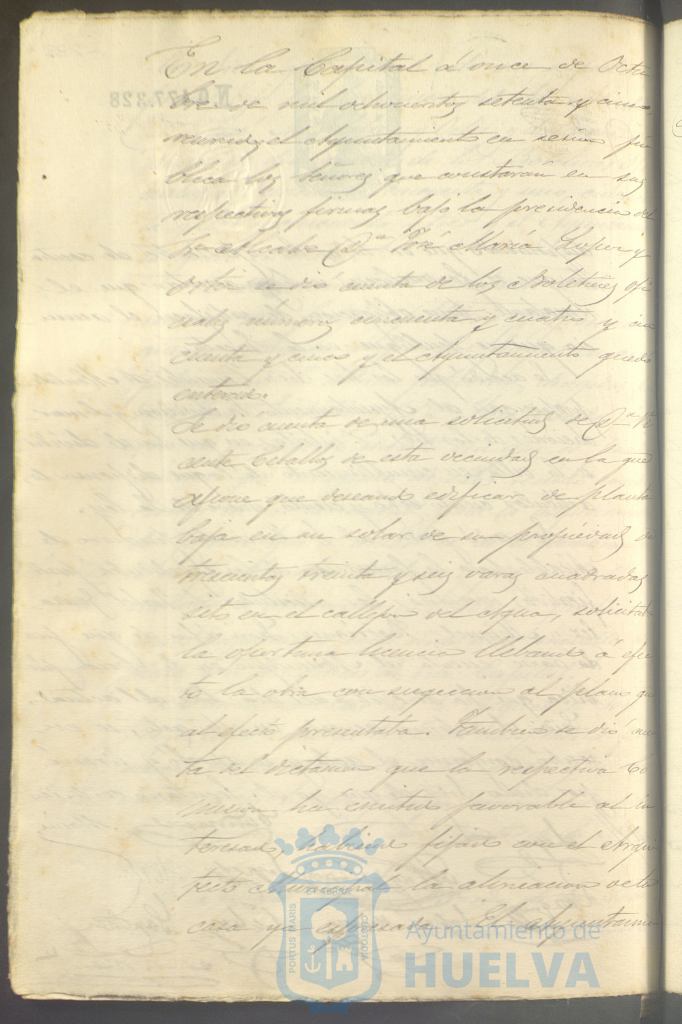 En la Capital á once de Octu
bre de mil ochocientos setenta y cinco
reunido el Ayuntamiento en sesion pu
blica los Señores que constarán en sus
respectivas firmas bajo la presidencia del
Sor Alcalde Dn José María Lopez y
Ortiz se dió cuenta de los Boletines ofi
ciales números cincuenta y cuatro y cin
cuenta y cinco y el Ayuntamiento quedó
enterado.
Se dió cuenta de una solicitud de Dn Vi
cente Ceballos de esta vecindad en la que
espone que deseando edificar de planta
baja en un solar de su propiedad de
trescientas treinta y seis varas cuadradas
sito en el callejon del Agua, solicitaba
la oportuna licencia llebando á efec
to la obra con sugecion al plano que
al efecto presentaba. Tambien se dió cuen
ta del dictamen que la respectiva Co
mision ha emitido favorable al in
teresado, habiendo fijado con el Arqui
tecto Municipal la alineacion de la
casa ya espresada. El Ayuntamien
N 0.477.328
PORTUS MARIS
ET TERRAE
CUSTODIA
Ayuntamiento de
HUELVA